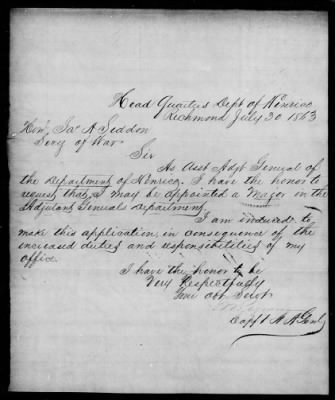 Head Quarters Dept of Henrico
Richmond July 30 1863
Hon. Jas A Seddon
Secy of War
Sir
As Asst Adjt General of
the Department of Henrico, I have the honor to
request that I may be appointed a Major in the
Adjutant Generals Department.
I am induced to
make this application in consequence of the
increased duties and responsibilities of my
office.
I have the honor to be
Very Respectfully
Your obt Servt
Capt & A A Genl